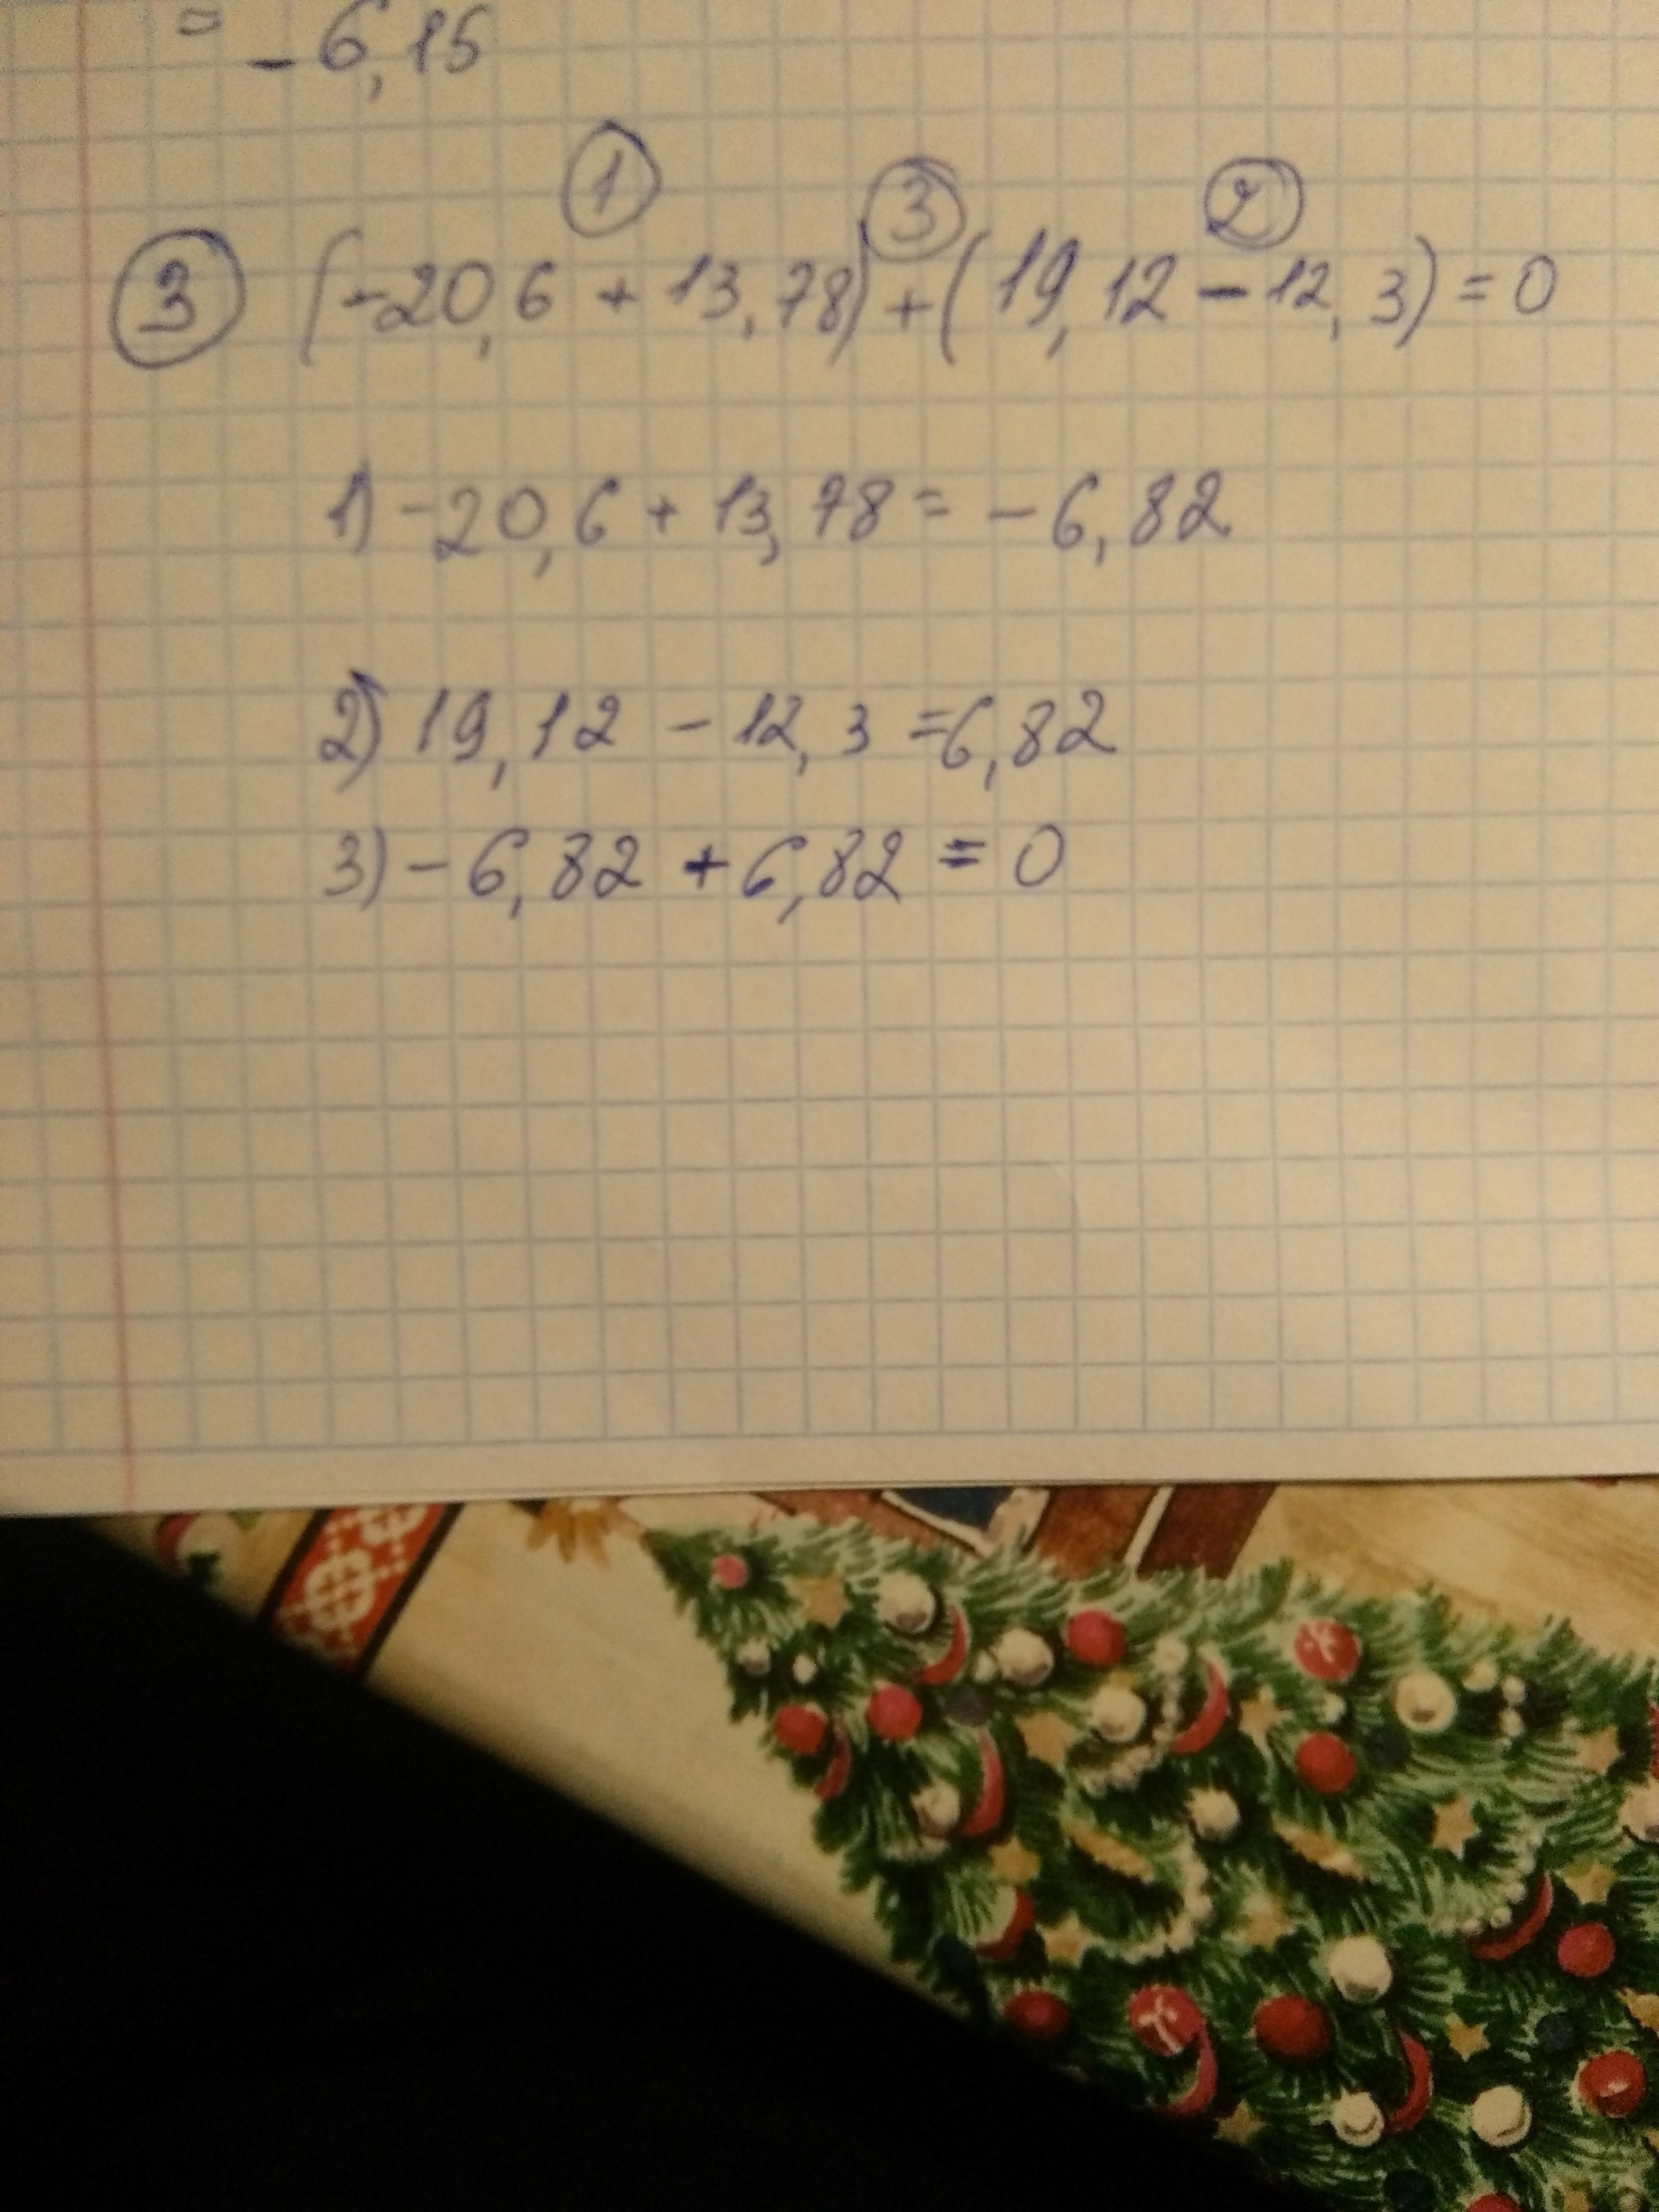 = - 6,15
① ③ ②
③ (-20,6 + 13,78) + (19,12 - 12,3) = 0
1) -20,6 + 13,78 = - 6,82
2) 19,12 - 12,3 = 6,82
3) - 6,82 + 6,82 = 0